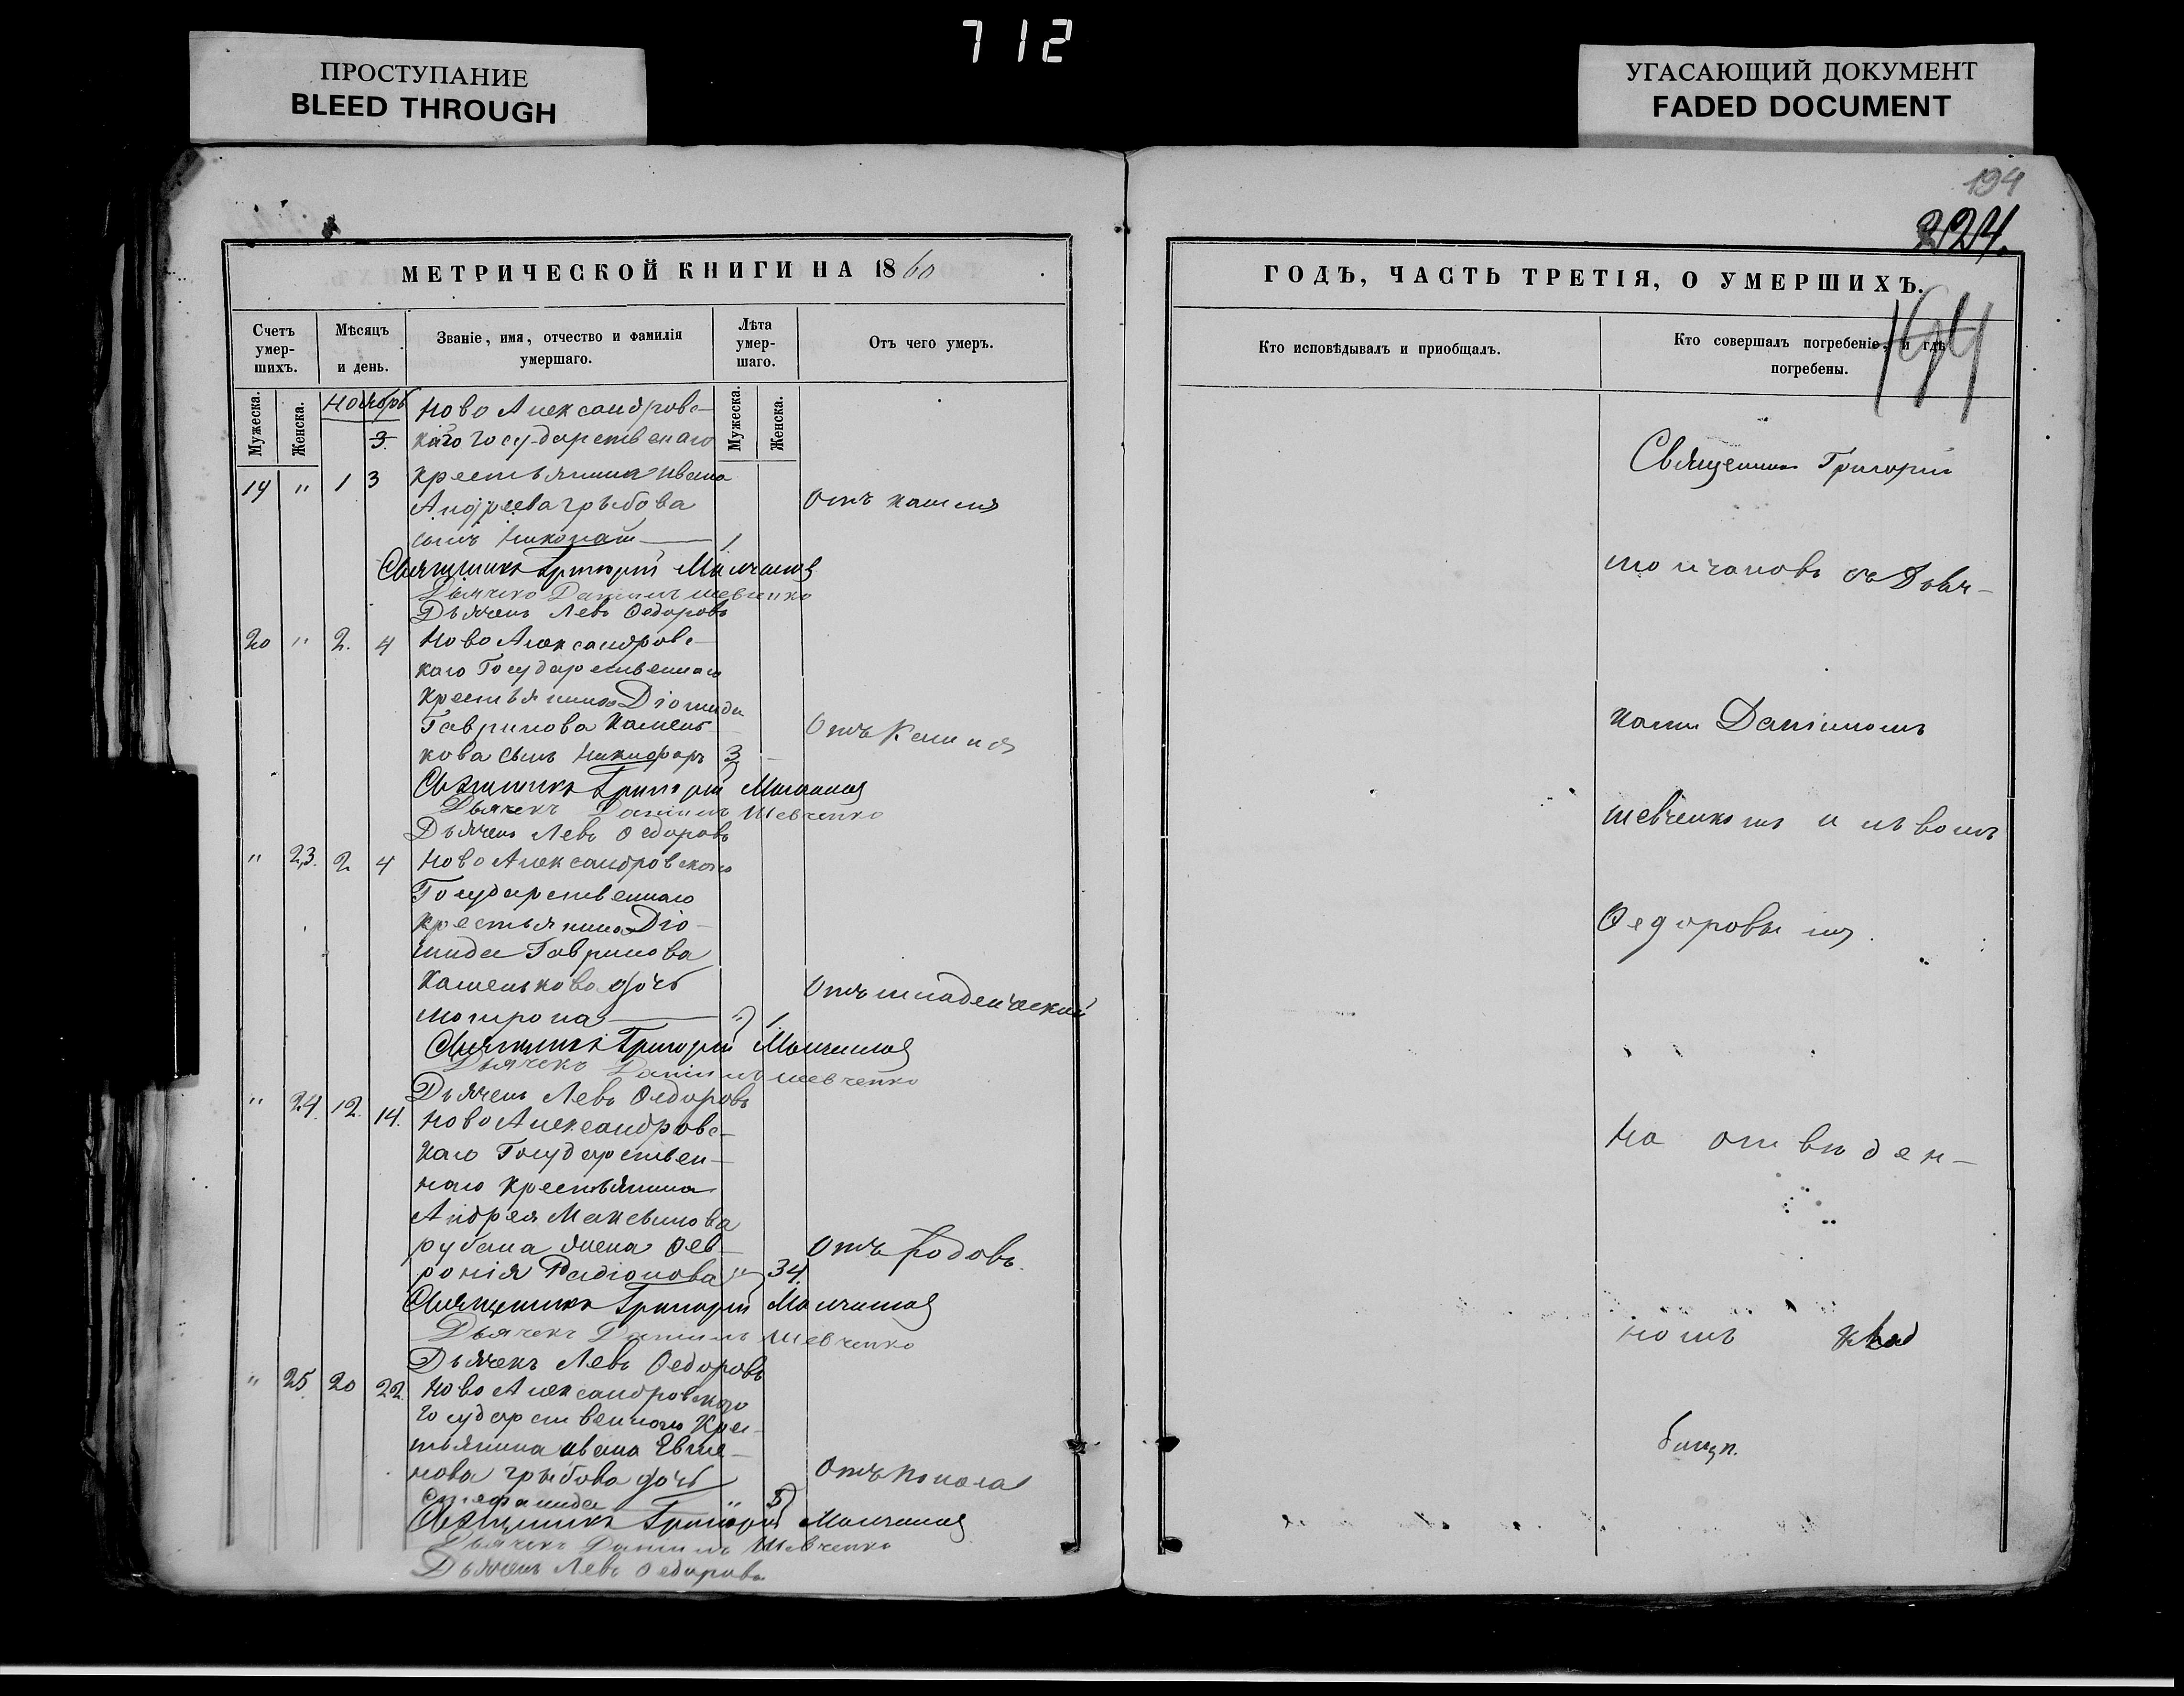 712
ПРОСТУПАНИЕ
BLEED THROUGH
УГАСАЮЩИЙ ДОКУМЕНТ
FADED DOCUMENT
194
224.
МЕТРИЧЕСКОЙ КНИГИ НА 1860
Счетъ умер-шихъ.
Мѣсяцъ и день.
Званіе, имя, отчество и фамилія умершаго.
Лѣта умер-шаго.
Отъ чего умеръ.
Мужеска.
Женска.
Мужеска.
Женска.
Ноябрь
Ново Александровс-
3.
каго государственаго
крестьянина Ивана
19 " 1 3
Андреева Грыбова
Отъ кашля
сынъ Николай — 1
Священникъ Григорій Молчановъ
Дьячекъ Даніилъ Шевченко
Дьячекъ Левъ Ѳедоровъ
20 " 2. 4 Ново Александровс-
каго Государственнаго
крестьянина Діомида
Гаврилова Камень-
Отъ Кашля
кова сынъ Никифоръ 3 —
Священникъ Григорій Молчановъ
Дьячекъ Даніилъ Шевченко
Дьячекъ Левъ Ѳедоровъ
" 23. 2 4 Ново Александровскаго
Государственнаго
крестьянина Діо-
мида Гаврилова
Каменькова дочь
Отъ младенческой
— " 1
Священникъ Григорій Молчановъ
Дьячекъ Даніилъ Шевченко
Дьячекъ Левъ Ѳедоровъ
" 24. 12. 14. Ново Александровс-
каго Государствен-
наго крестьянина
Андрея Максимова
Рубана жена Фев-
Отъ родовъ.
ронія Радіонова " 34.
Священникъ Григорій Молчановъ
Дьячекъ Даніилъ Шевченко
Дьячекъ Левъ Ѳедоровъ
" 25. 20 22. Ново Александровскаго
Государственнаго Крес-
тьянина Ивана
Грыбова дочь
Отъ
Степанида " 5
Священникъ Григорій Молчановъ
Дьячекъ Даніилъ Шевченко
Дьячекъ Левъ Ѳедоровъ
ГОДЪ, ЧАСТЬ ТРЕТІЯ, О УМЕРШИХЪ.
Кто исповѣдывалъ и пріобщалъ.
Кто совершалъ погребеніе, и гдѣ погребены.
Священникъ Григорій
Молчановъ съ Дьяч-
ками Даніиломъ
Шевченкомъ и Львомъ
Ѳедоровымъ.
На отведен-
номъ клад
бищѣ.